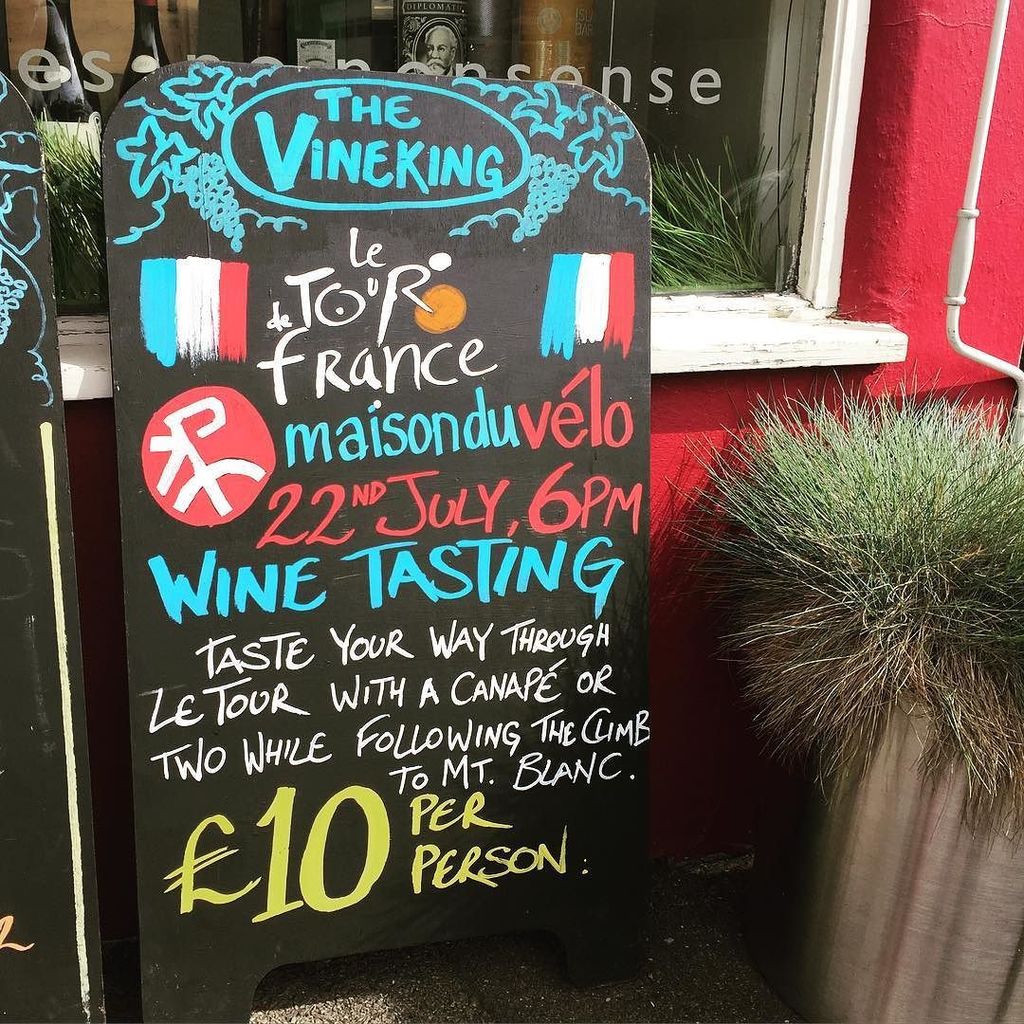 es • no nonsense
DIPLOMATI
THE
VINEKING
le
de TOUR
france
maisonduvélo
22ND JULY, 6PM
WINE TASTING
TASTE YOUR WAY THROUGH
LE TOUR WITH A CANAPÉ OR
TWO WHILE FOLLOWING THE CLIMB
TO MT. BLANC.
£10 PER
PERSON.